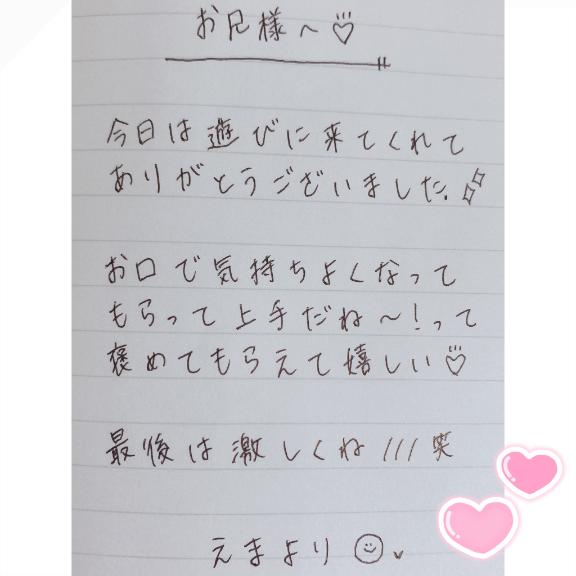 お兄様へ♡
今日は遊びに来てくれて
ありがとうございました.
お口で気持ちよくなって
もらって上手だね〜!って
褒めてもらえて嬉しい♡
最後は激しくね///笑
えまより